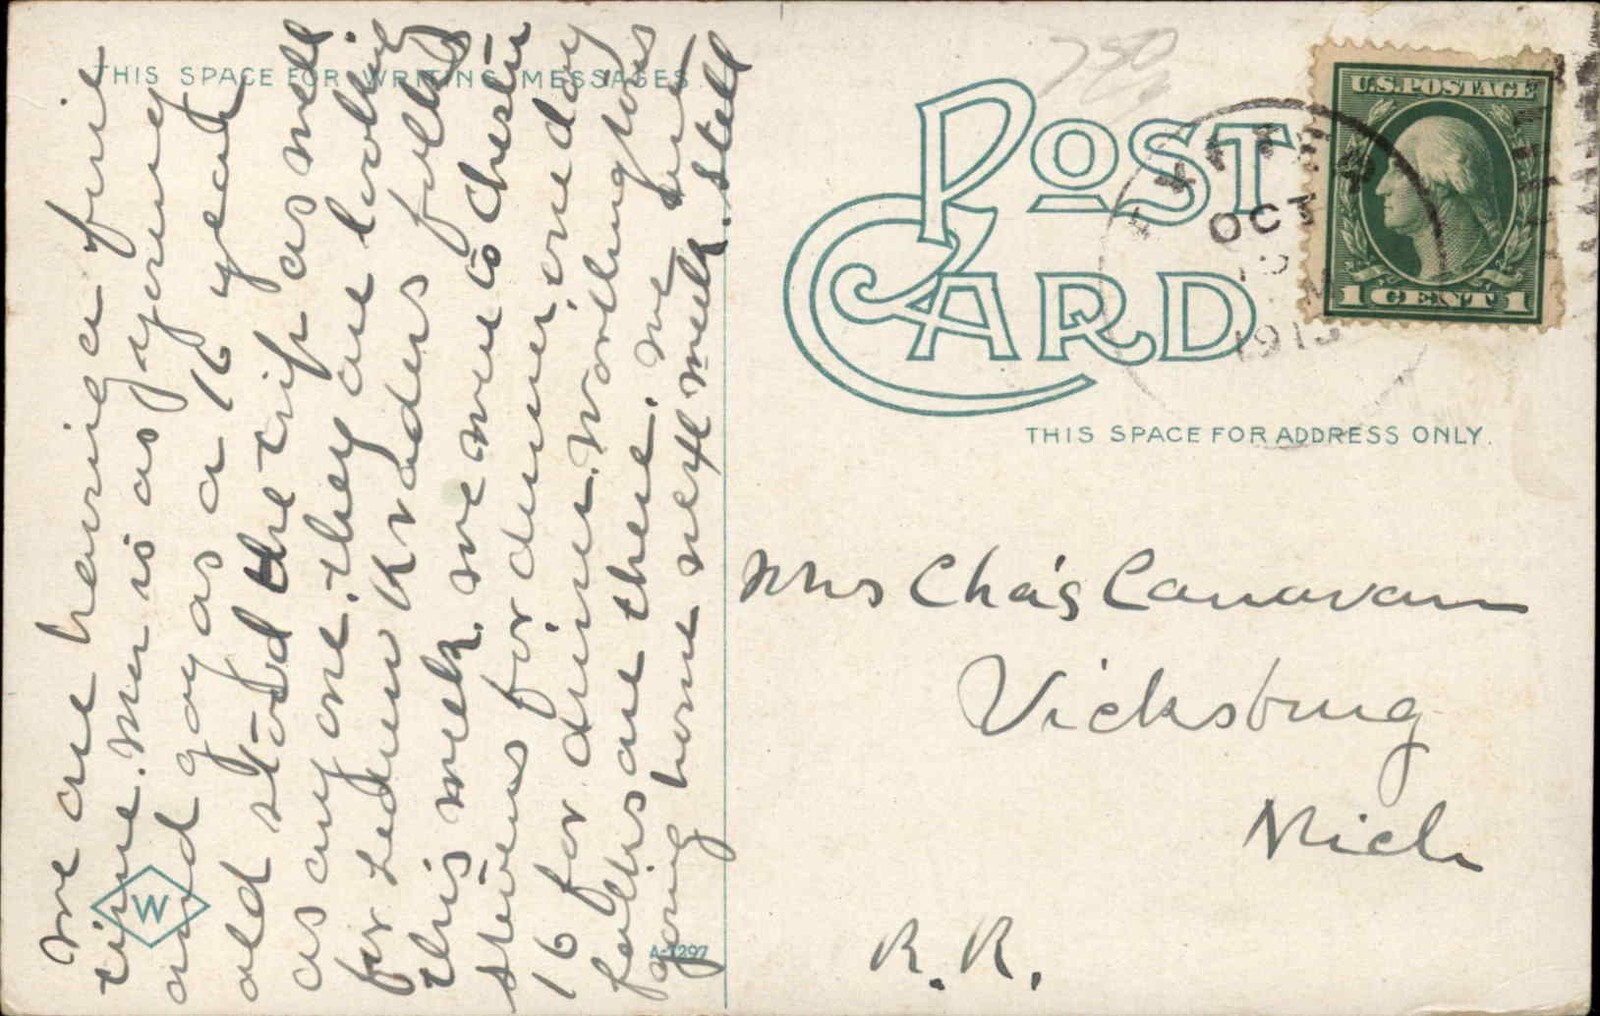 THIS SPACE FOR WRITING MESSAGES
we are having a fine
time. Ma is as young
and gay as a 16 year
old stood the trip as well
as any one. they are looking
for Ledew Kraders folks
this week. we were to Chester
Stevens for dinner. one day
16 for dinner. Worthingtons
folks are there. we are
going home next week. Still
W
A-1297
POST CARD
U.S. POSTAGE
1 CENT 1
OCT
191
THIS SPACE FOR ADDRESS ONLY.
Mrs Cha's Canavan
Vicksburg
Mich
R.R.